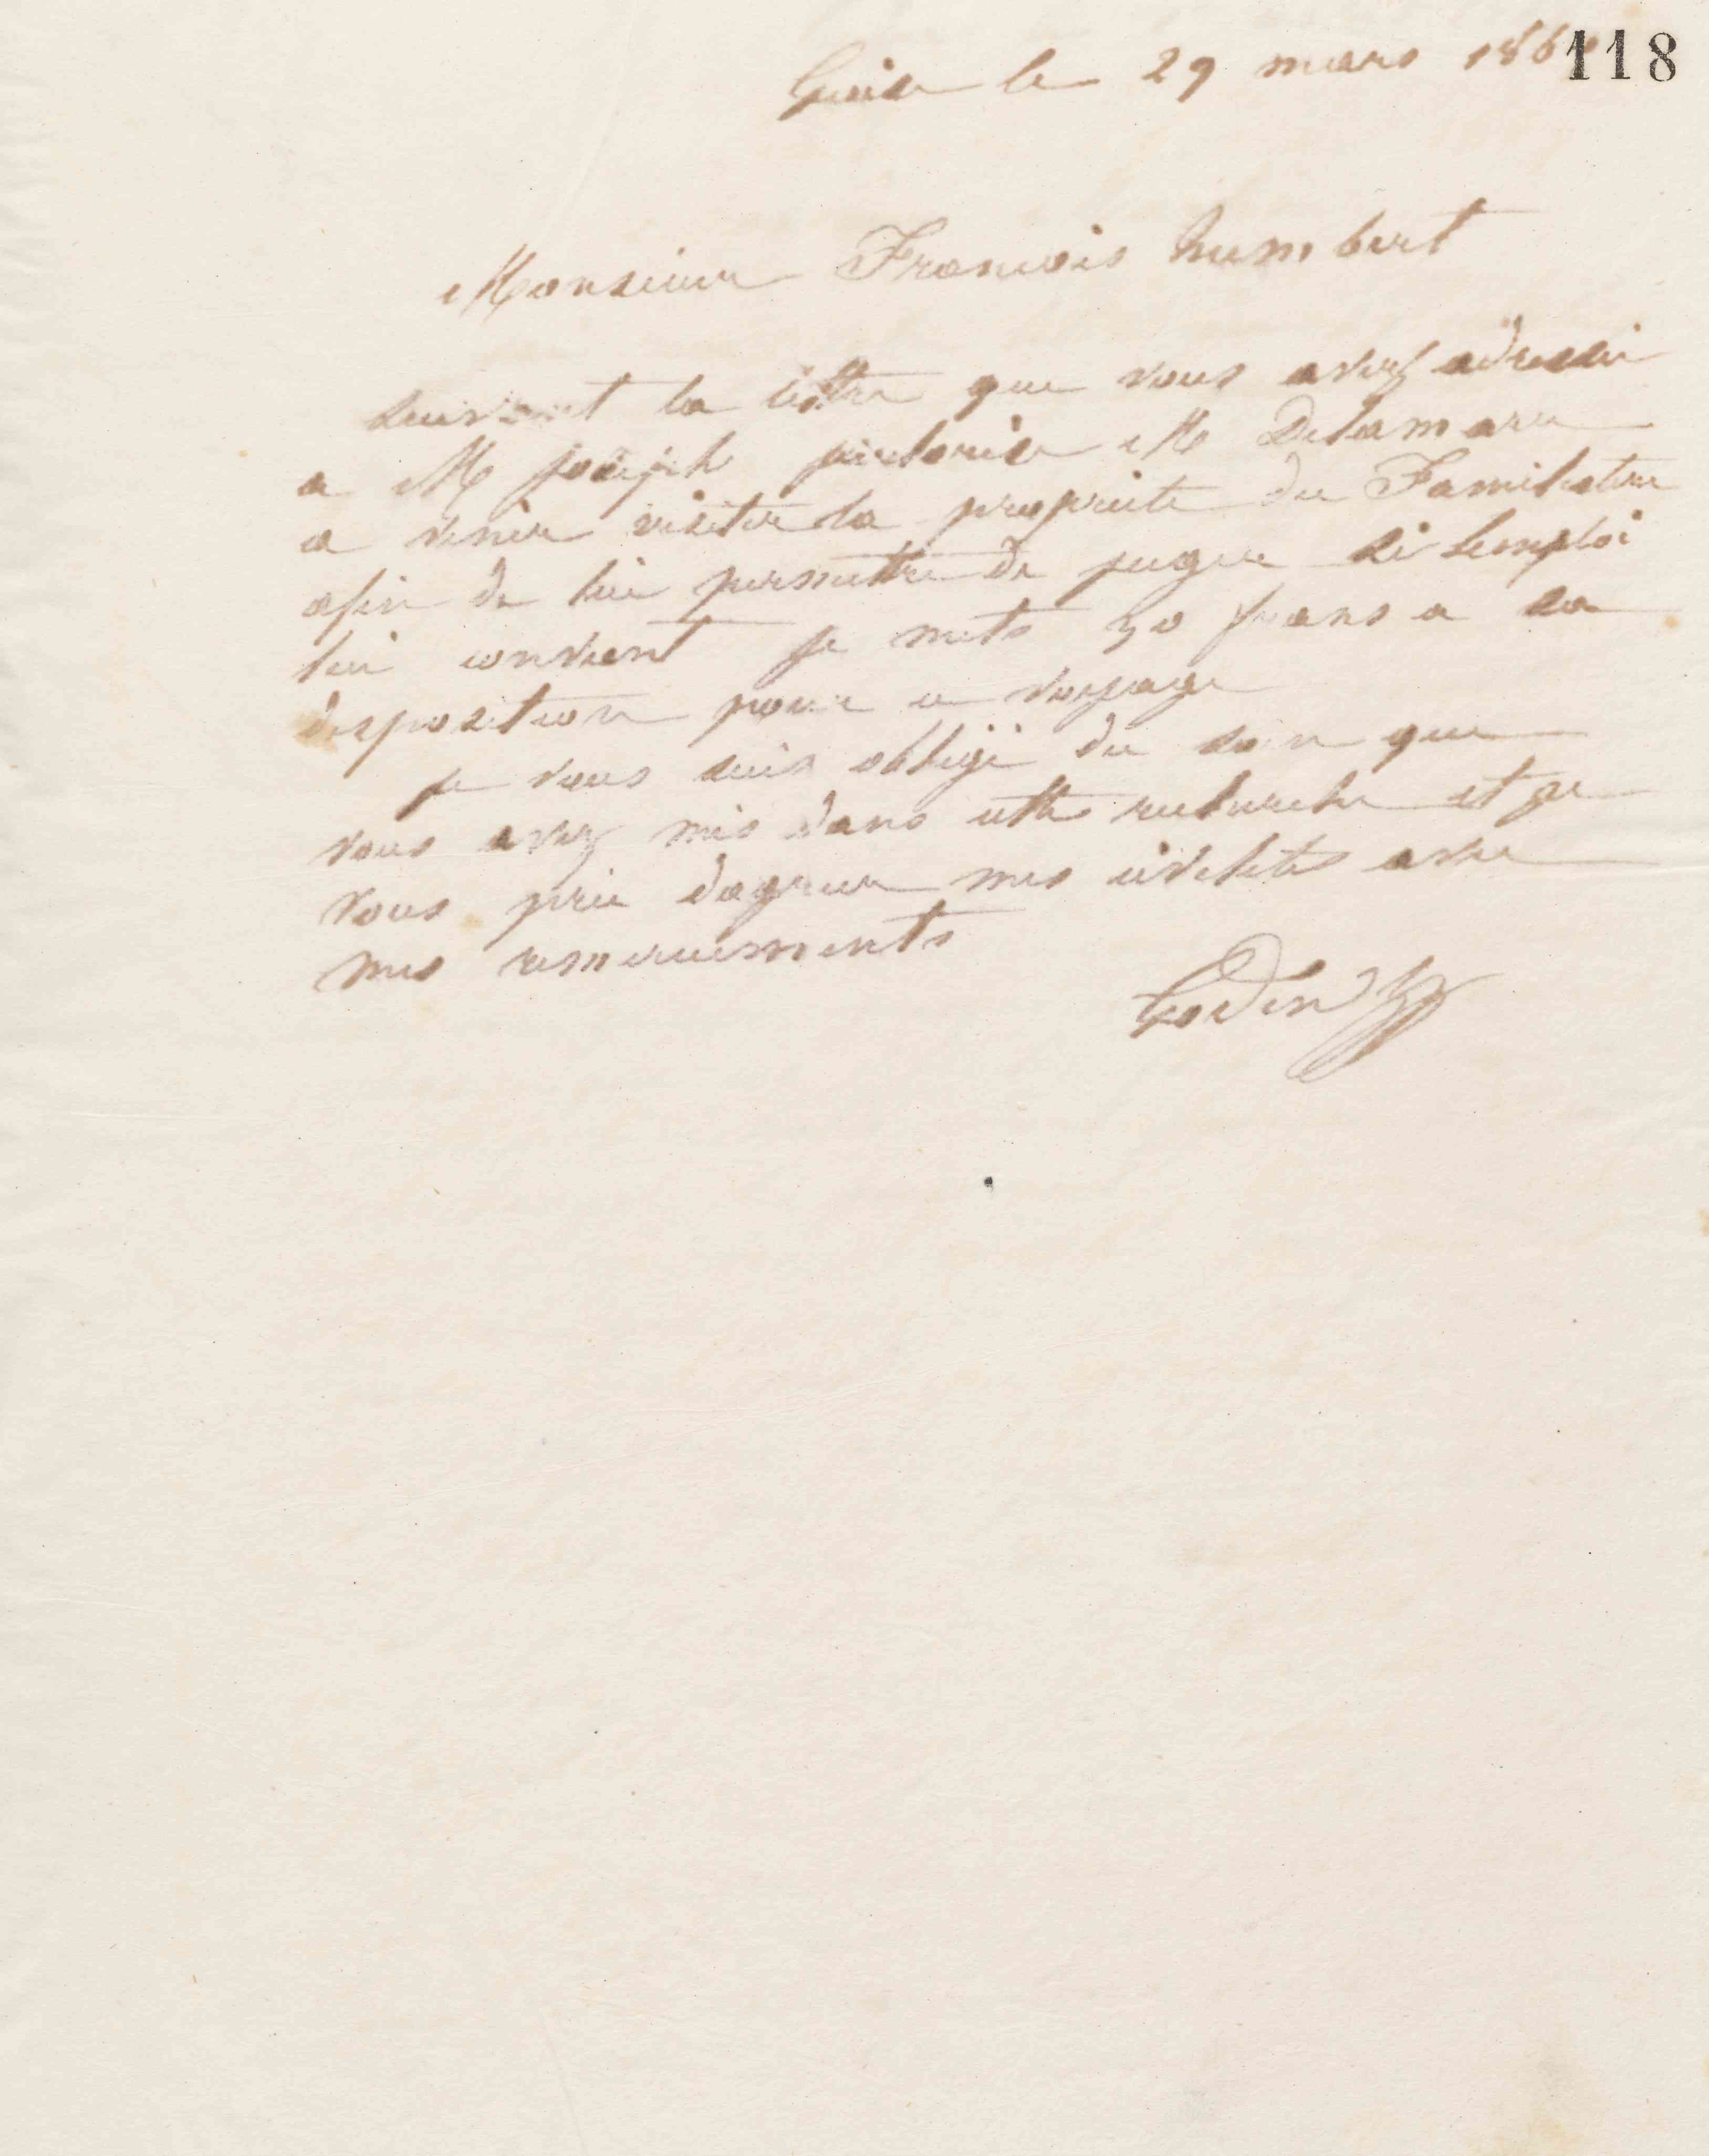 118
Guise le 29 mars 186
Monsieur Francois humbert
suivant la lettre que vous avez adressé
a M joseph M Delamare
a venir visiter la propriete du Familistere
afin de lui permettre de juger si lemploi
lui convient je mets 50 frans a sa
disposition pour ce voyage
je vous suis obligé du soin que
vous avez mis dans cette recherche et je
vous prie dagreer mes civilités avec
mes remerciements
Godin